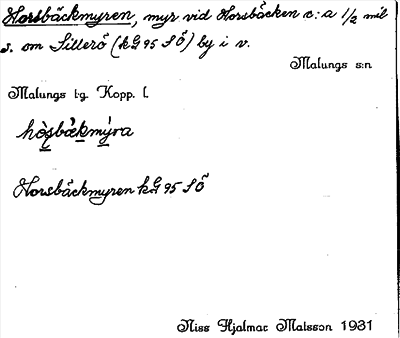 Horsbäckmyren, myr vid Horsbäcken c:a 1/2 mil
s. om Sillerö (kG 95 SÖ) by i v.
Malungs s:n
Malungs tg. Kopp. l.
hòṣbäkmýra
Horsbäckmyren kG 95 SÖ
Niss Hjalmar Matsson 1931